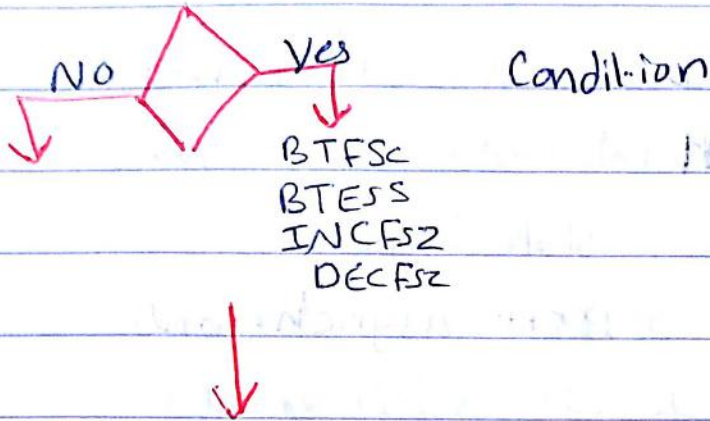 NO Yes Condition
BTFSC
BTESS
INCFSZ
DECFSZ